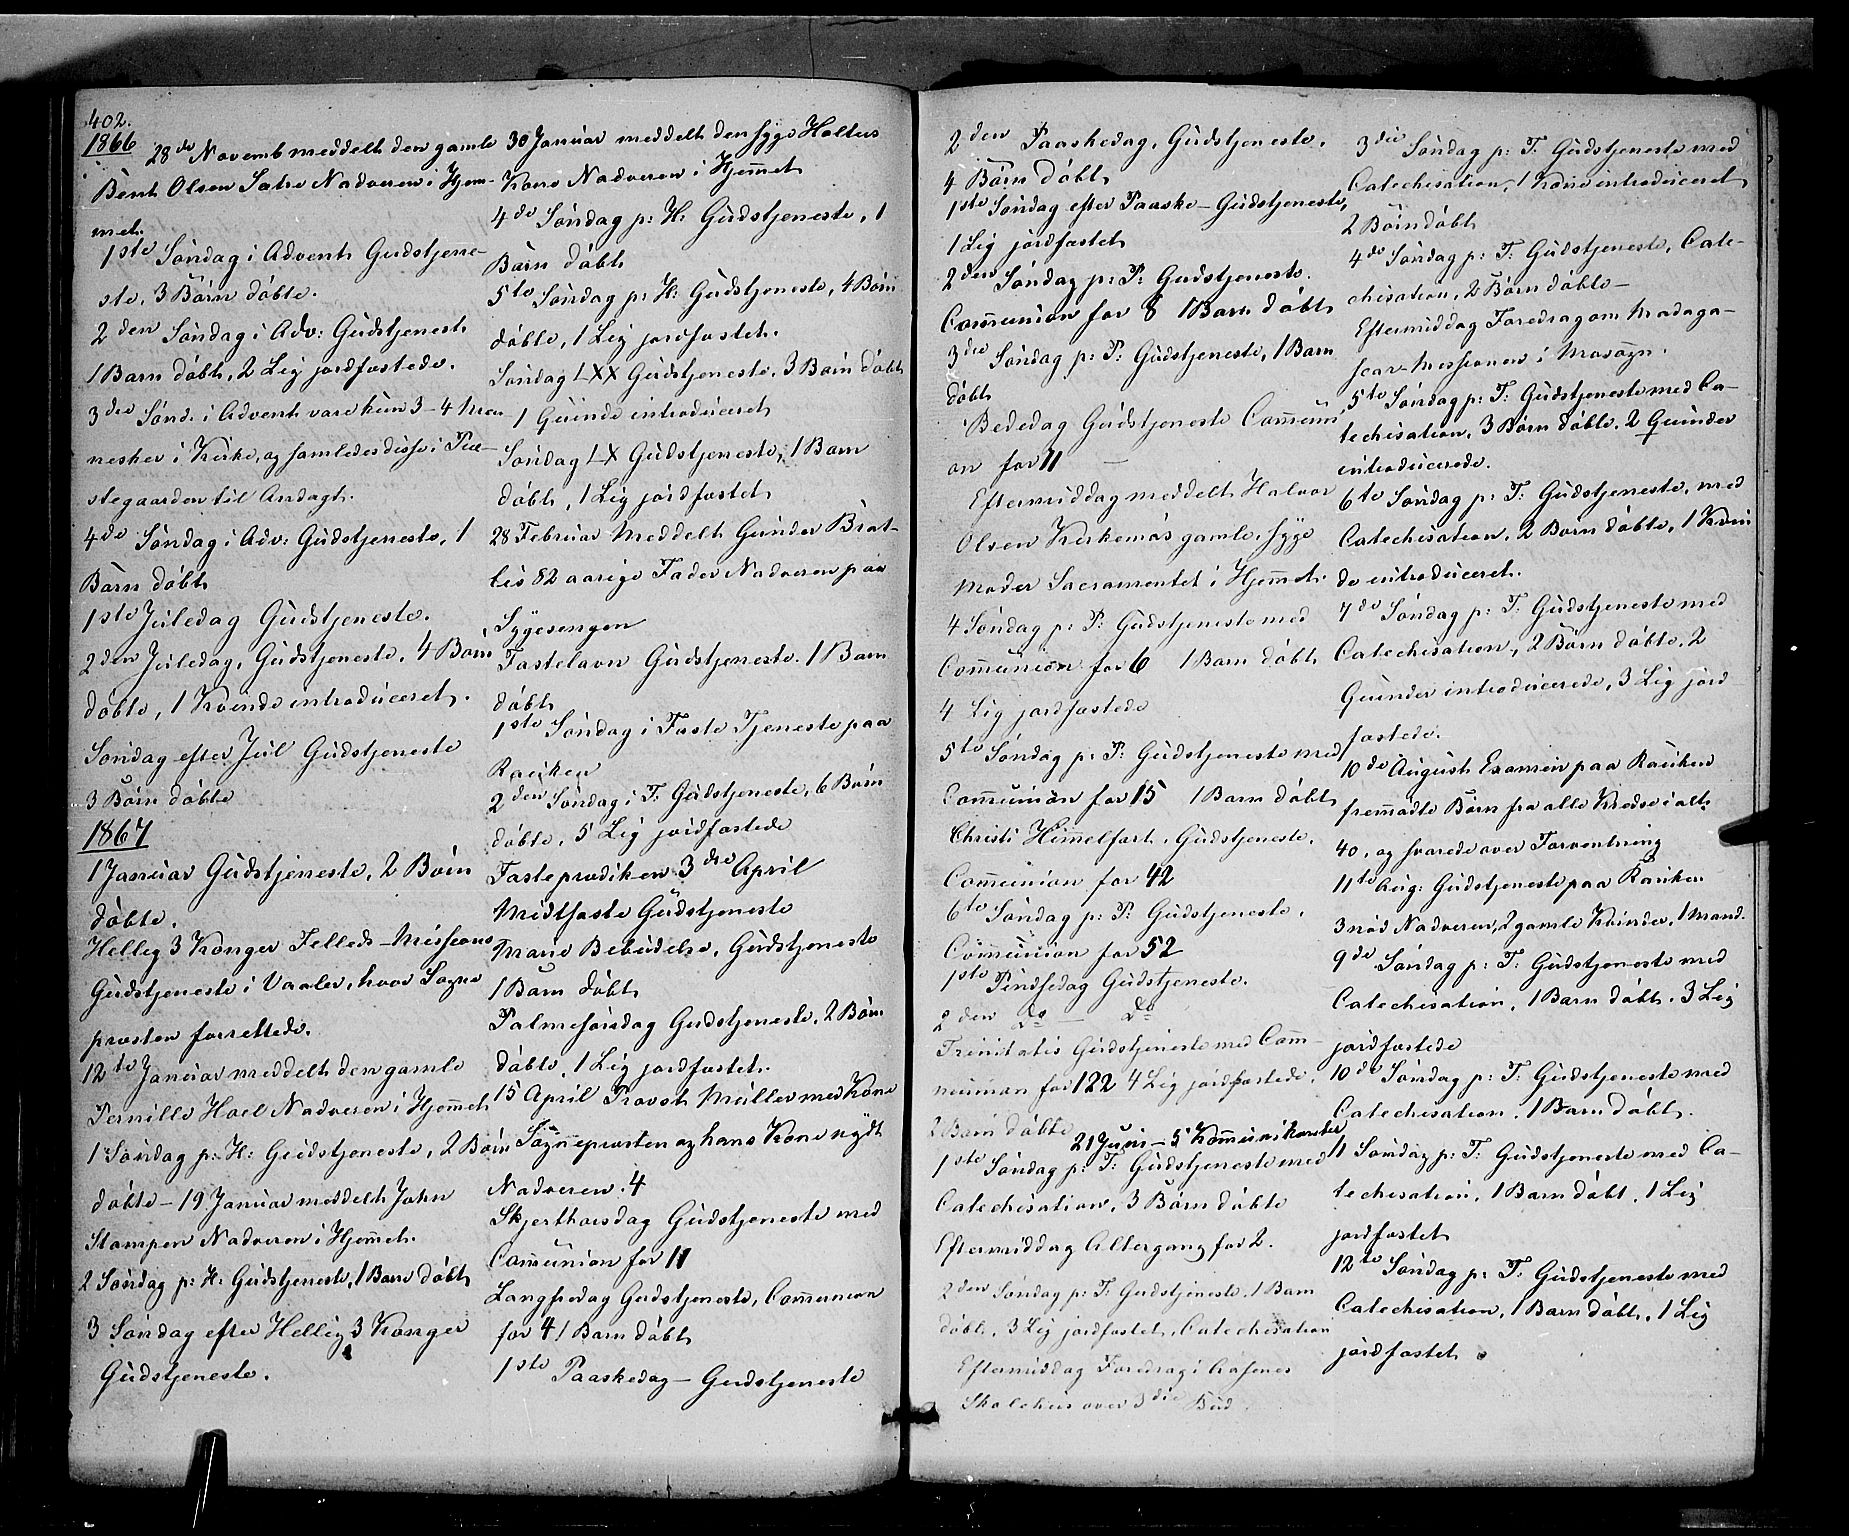 402.
1866
28de Novemb meddelt den gamle
Bent Olsen Sætre Nadveren i Hjem-
met.
1ste Søndag i Advent Gudstjene-
ste, 3 Börn döbte.
2den Søndag i Adv: Gudstjeneste
1 Barn döbt, 2 Lig jordfæstede.
3die Sønd: i Advent vare kun 3-4 Men
nesker i Kirke, og samledes disse i Præ-
stegaarden til Andagt.
4de Søndag i Adv: Gudstjeneste, 1
Barn döbt
1ste Juledag Gudstjeneste.
2den Juledag, Gudstjeneste, 4 Börn
döbte, 1 Kvinde introduceret.
Søndag efter Jul Gudstjeneste
3 Börn döbte
1867
1 Januar Gudstjeneste, 2 Börn
döbte.
Hellig 3 Konger Felleds-Missions
Gudstjeneste i Vaaler, hvor Sogne
præsten forrettede.
12te Januar meddelt den gamle
Pernille Hoel Nadveren i Hjemmet
1 Søndag p: H: Gudstjeneste, 2 Börn
döbte - 19 Januar meddelt John
Stampen Nadveren i Hjemmet.
2 Søndag p: H: Gudstjeneste, 1 Barn döbt
3 Søndag efter Hellig 3 Konger
Gudstjeneste.
30 Januar meddelt den syge Holtes
Kone Nadveren i Hjemmet
4de Søndag p: H: Gudstjeneste, 1
Barn döbt
5te Søndag p: H: Gudstjeneste, 4 Börn
döbte, 1 Lig jordfæstet.
Søndag LXX Gudstjeneste, 3 Börn döbt
1 Quinde introduceret
Søndag LX Gudstjeneste, 1 Barn
döbt, 1 Lig jordfæstet
28 Februar Meddelt Gunder Brat-
lis 82 aarige Fader Nadveren paa
Sygesengen
Fastelavn Gudstjeneste. 1 Barn
döbt
1ste Søndag i Faste Tjeneste paa
Rauken
2den Søndag i F: Gudstjeneste, 6 Börn
döbte, 5 Lig jordfæstede
Fasteprædiken 3die April
Midtfaste Gudstjeneste
Mariæ Bebudelse, Gudstjeneste
1 Barn döbt
Palmesøndag Gudstjeneste, 2 Börn
döbte, 1 Lig jordfæstet.
15 April Provst Müller med Kone
Sognepræsten og hans Kone nydt
Nadveren. 4
Skjerthorsdag Gudstjeneste med
Communion for 11
Langfredag Gudstjeneste, Communion
for 4 1 Barn döbt
1ste Paaskedag - Gudstjeneste
2den Paaskedag, Gudstjeneste,
4 Börn döbt
1ste Søndag efter Paaske - Gudstjeneste,
1 Lig jordfæstet
2den Søndag p: P: Gudstjeneste.
Communion for 8 1 Barn döbt
3die Søndag p: P: Gudstjeneste, 1 Barn
döbt
Bededag Gudstjeneste Communi
on for 11
Eftermiddag meddelt Halvor
Olsen Kirkemos gamle, syge
Moder Sacramentet i Hjemmet.
4 Søndag p: P: Gudstjeneste med
Communion for 6 1 Barn döbt
4 Lig jordfæstede
5te Søndag p: P: Gudstjeneste med
Communion for 15 1 Barn döbt
Christi Himmelfart, Gudstjeneste.
Communion for 42
6te Søndag p: P: Gudstjeneste.
Communion for 52
1ste Pindsedag Gudstjeneste.
2den Do - Do
Trinitatis Gudstjeneste med Comm-
nunion for 122 4 Lig jordfæstede,
2 Barn döbte
21 Juni - 5 Kommunikanter
1ste Søndag p: T: Gudstjeneste med
Catechisation, 3 Börn döbte
Eftermiddag Altergang for 2.
2den Søndag p: T: Gudstjeneste, 1 Barn
döbt, 3 Lig jordfæstet, Catechisation
Eftermiddag Foredrag i Aasenes
Skolehus over 3die Bud
3die Søndag p: T: Gudstjeneste med
Catechisation, 1 Kone introduceret
2 Börn döbt
4de Søndag p: T: Gudstjeneste, Cate-
chisation, 2 Börn döbte -
Eftermiddag Foredrag om Madaga-
scar-Missionen i Mosogn.
5te Søndag p: T: Gudstjeneste med Ca-
techisation, 3 Börn döbte, 2 Quinder
introducerede.
6te Søndag p: T: Gudstjeneste, med
Catechisation, 2 Börn döbte, 1 Kvin
de introduceret.
7de Søndag p: T: Gudstjeneste med
Catechisation, 2 Börn döbte, 2
Quinder introducerede, 3 Lig jord
fæstede.
10de August Examen paa Rauken
fremmödte Börn fra alle Kredse i alt
40, og svarede over Forventning
11te Aug: Gudstjeneste paa Rauken
3 nød Nadveren, 2 gamle Kvinder, 1 Mand.
9de Søndag p: T: Gudstjeneste med
Catechisation, 1 Barn döbt. 3 Lig
jordfæstede
10de Søndag p: T: Gudstjeneste med
Catechisation, 1 Barn döbt.
11 Søndag p: T: Gudstjeneste med Ca-
techisation, 1 Barn döbt, 1 Lig
jordfæstet
12te Søndag p: T: Gudstjeneste med
Catechisation, 1 Barn döbt, 1 Lig
jordfæstet